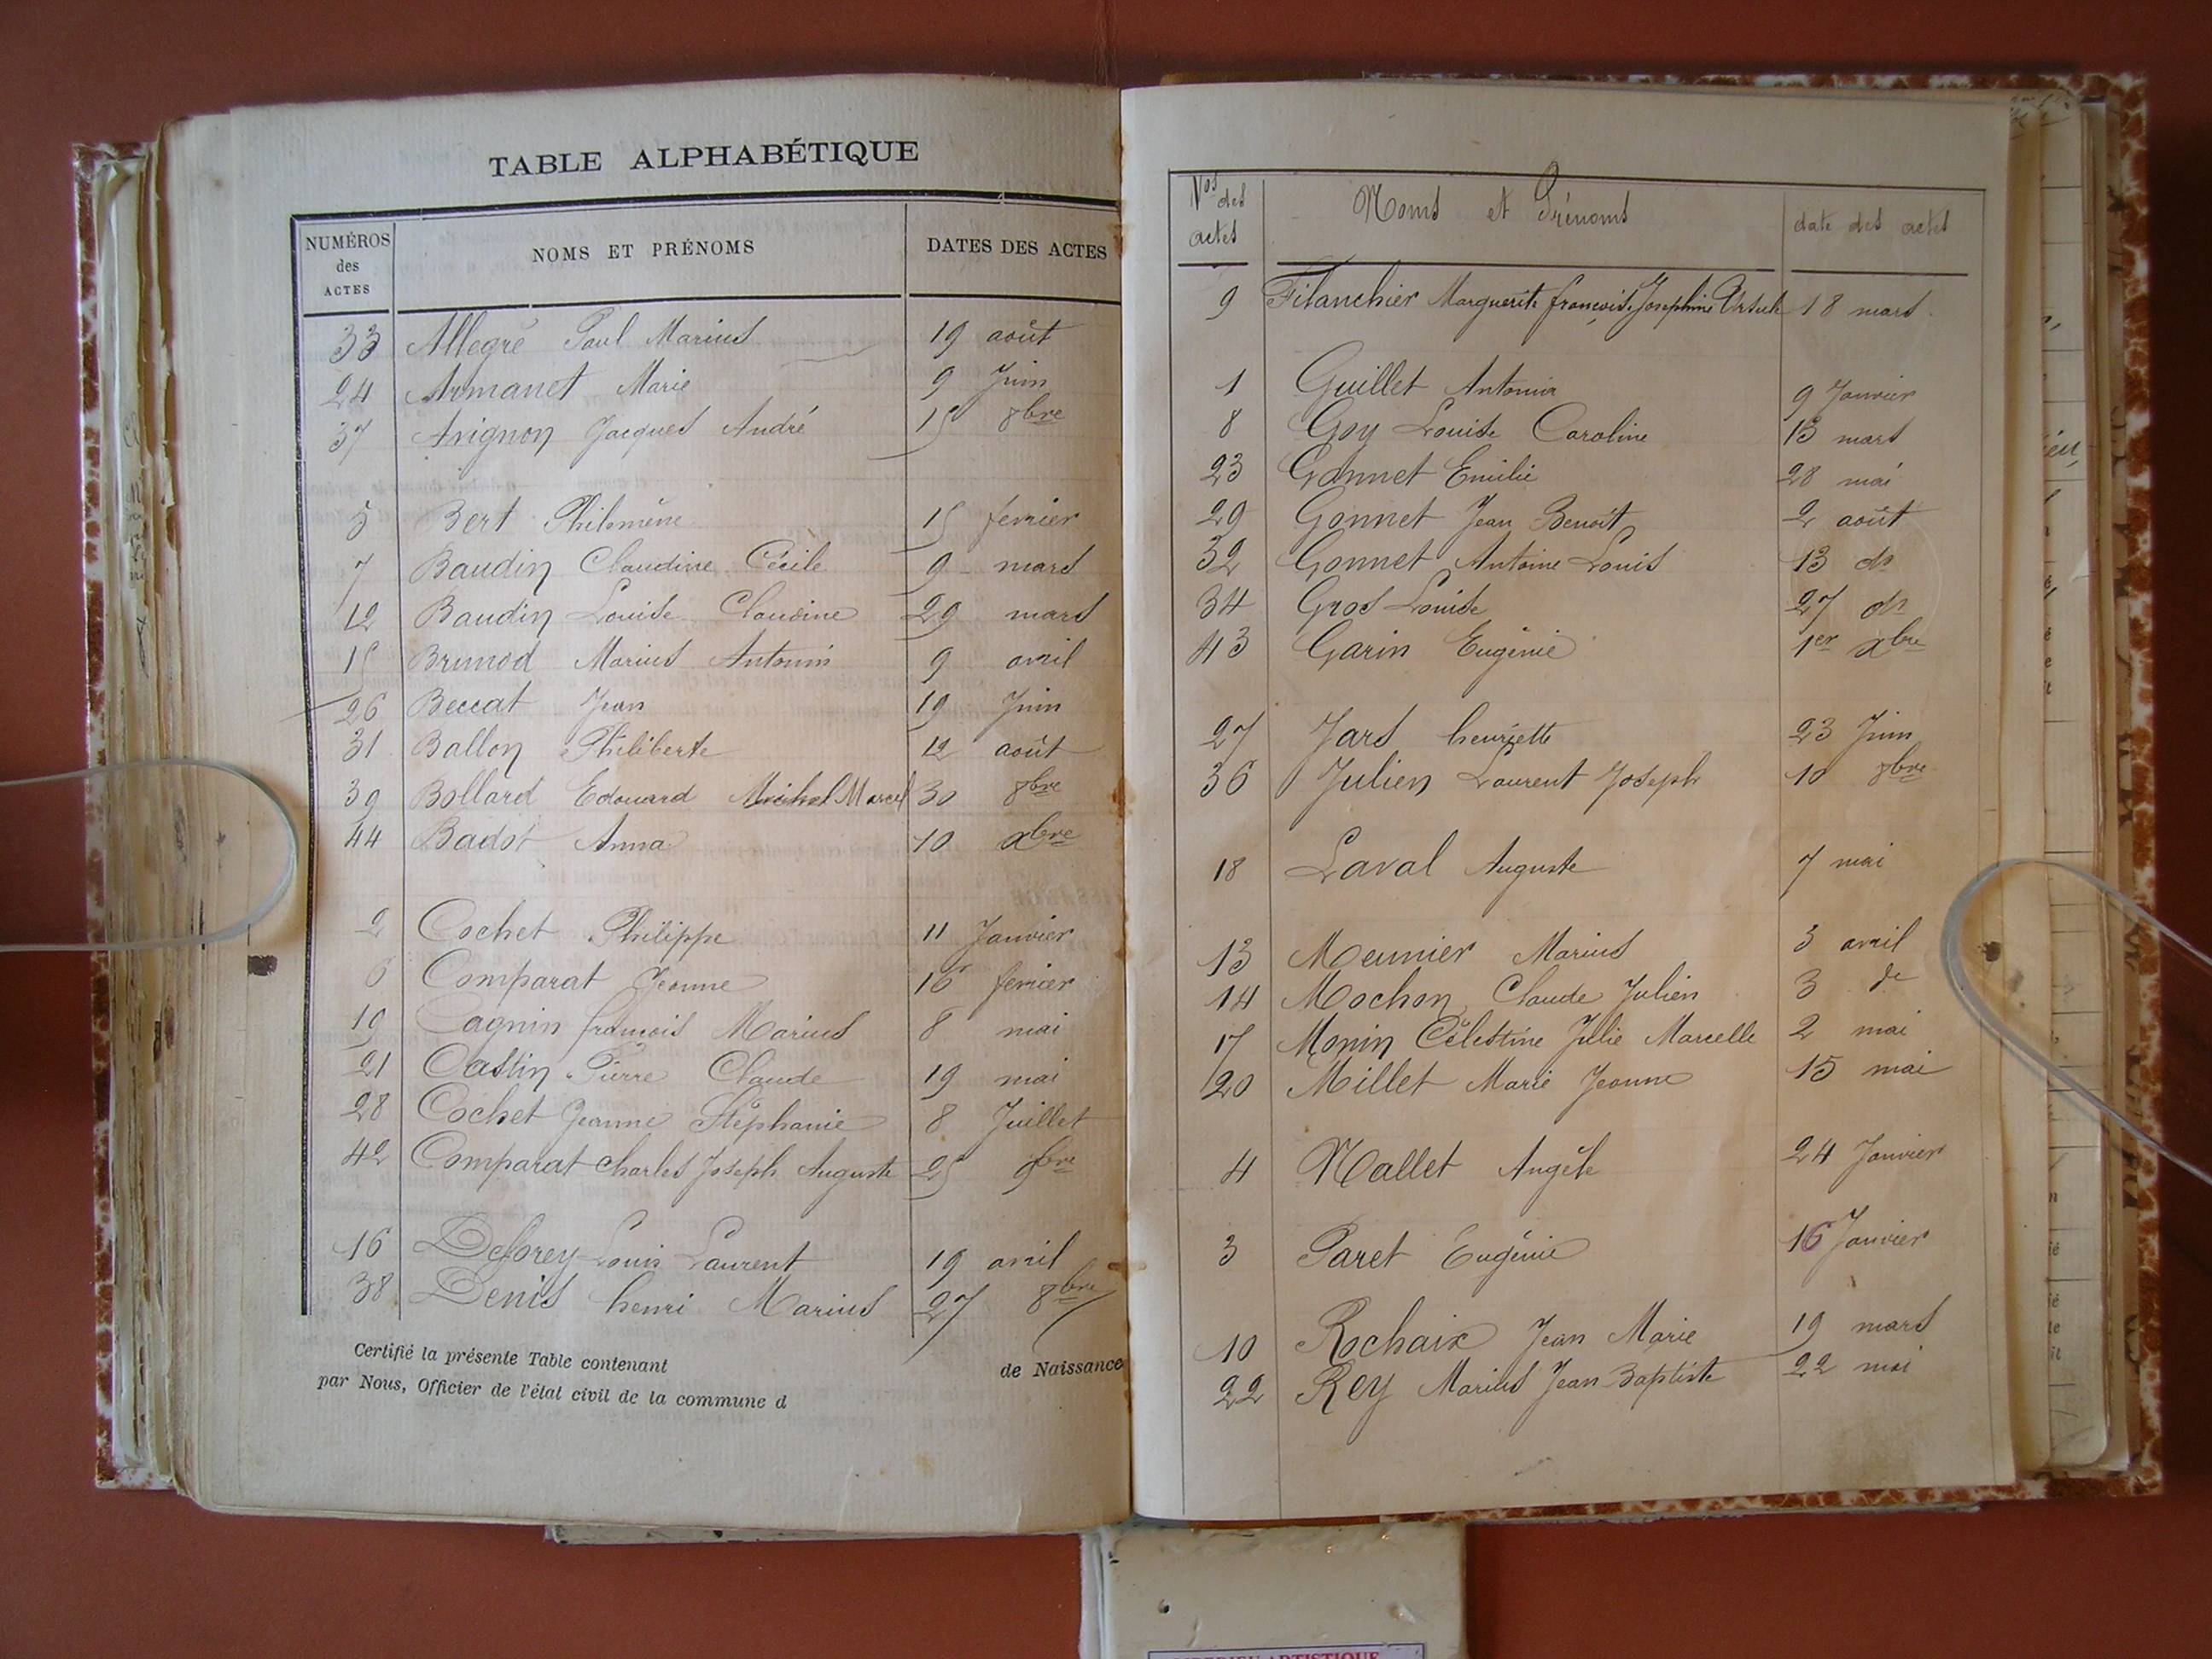 TABLE ALPHABÉTIQUE
NUMÉROS des ACTES NOMS ET PRÉNOMS DATES DES ACTES
33 Allegre Paul Marius 19 août
24 Armanet Marie 9 Juin
37 Avignon Jacques André 15 8bre
5 Bert Philomène 15 fevrier
7 Baudin Claudine Cécile 9 mars
12 Baudin Louise Claudine 29 mars
15 Brunod Marius Antonin 9 avril
26 Beccat Jean 19 Juin
31 Ballon Philiberte 12 août
39 Bollard Edouard Michel Marcel 30 8bre
44 Badot Anna 10 xbre
2 Cochet Philippe 11 Janvier
6 Comparat Jeanne 16 fevrier
19 Cagnin françois Marius 8 mai
21 Castin Pierre Claude 19 mai
28 Cochet Jeanne Stéphanie 8 Juillet
42 Comparat Charles Joseph Auguste 25 9bre
16 Deforey Louis Laurent 19 avril
38 Denis henri Marius 27 8bre
Certifié la présente Table contenant de Naissance
par Nous, Officier de l'état civil de la commune d
Nos des actes Noms et Prénoms date des actes
9 Filanchier Marguerite françoise Josephine Ursule 18 mars
1 Guillet Antonia 9 Janvier
8 Goy Louise Caroline 13 mars
23 Gonnet Emilie 28 mai
29 Gonnet Jean Benoît 2 août
32 Gonnet Antoine Louis 13 do
34 Gros Louise 27 do
43 Garin Eugénie 1er xbre
27 Jars henriette 23 Juin
36 Julien Laurent Joseph 10 8bre
18 Laval Auguste 7 mai
13 Meunier Marius 3 avril
14 Mochon Claude Julien 3 do
17 Monin Célestine Julie Marcelle 2 mai
20 Millet Marie Jeanne 15 mai
4 Nallet Angèle 24 Janvier
3 Paret Eugénie 16 Janvier
10 Rochaix Jean Marie 19 mars
22 Rey Marius Jean-Baptiste 22 mai